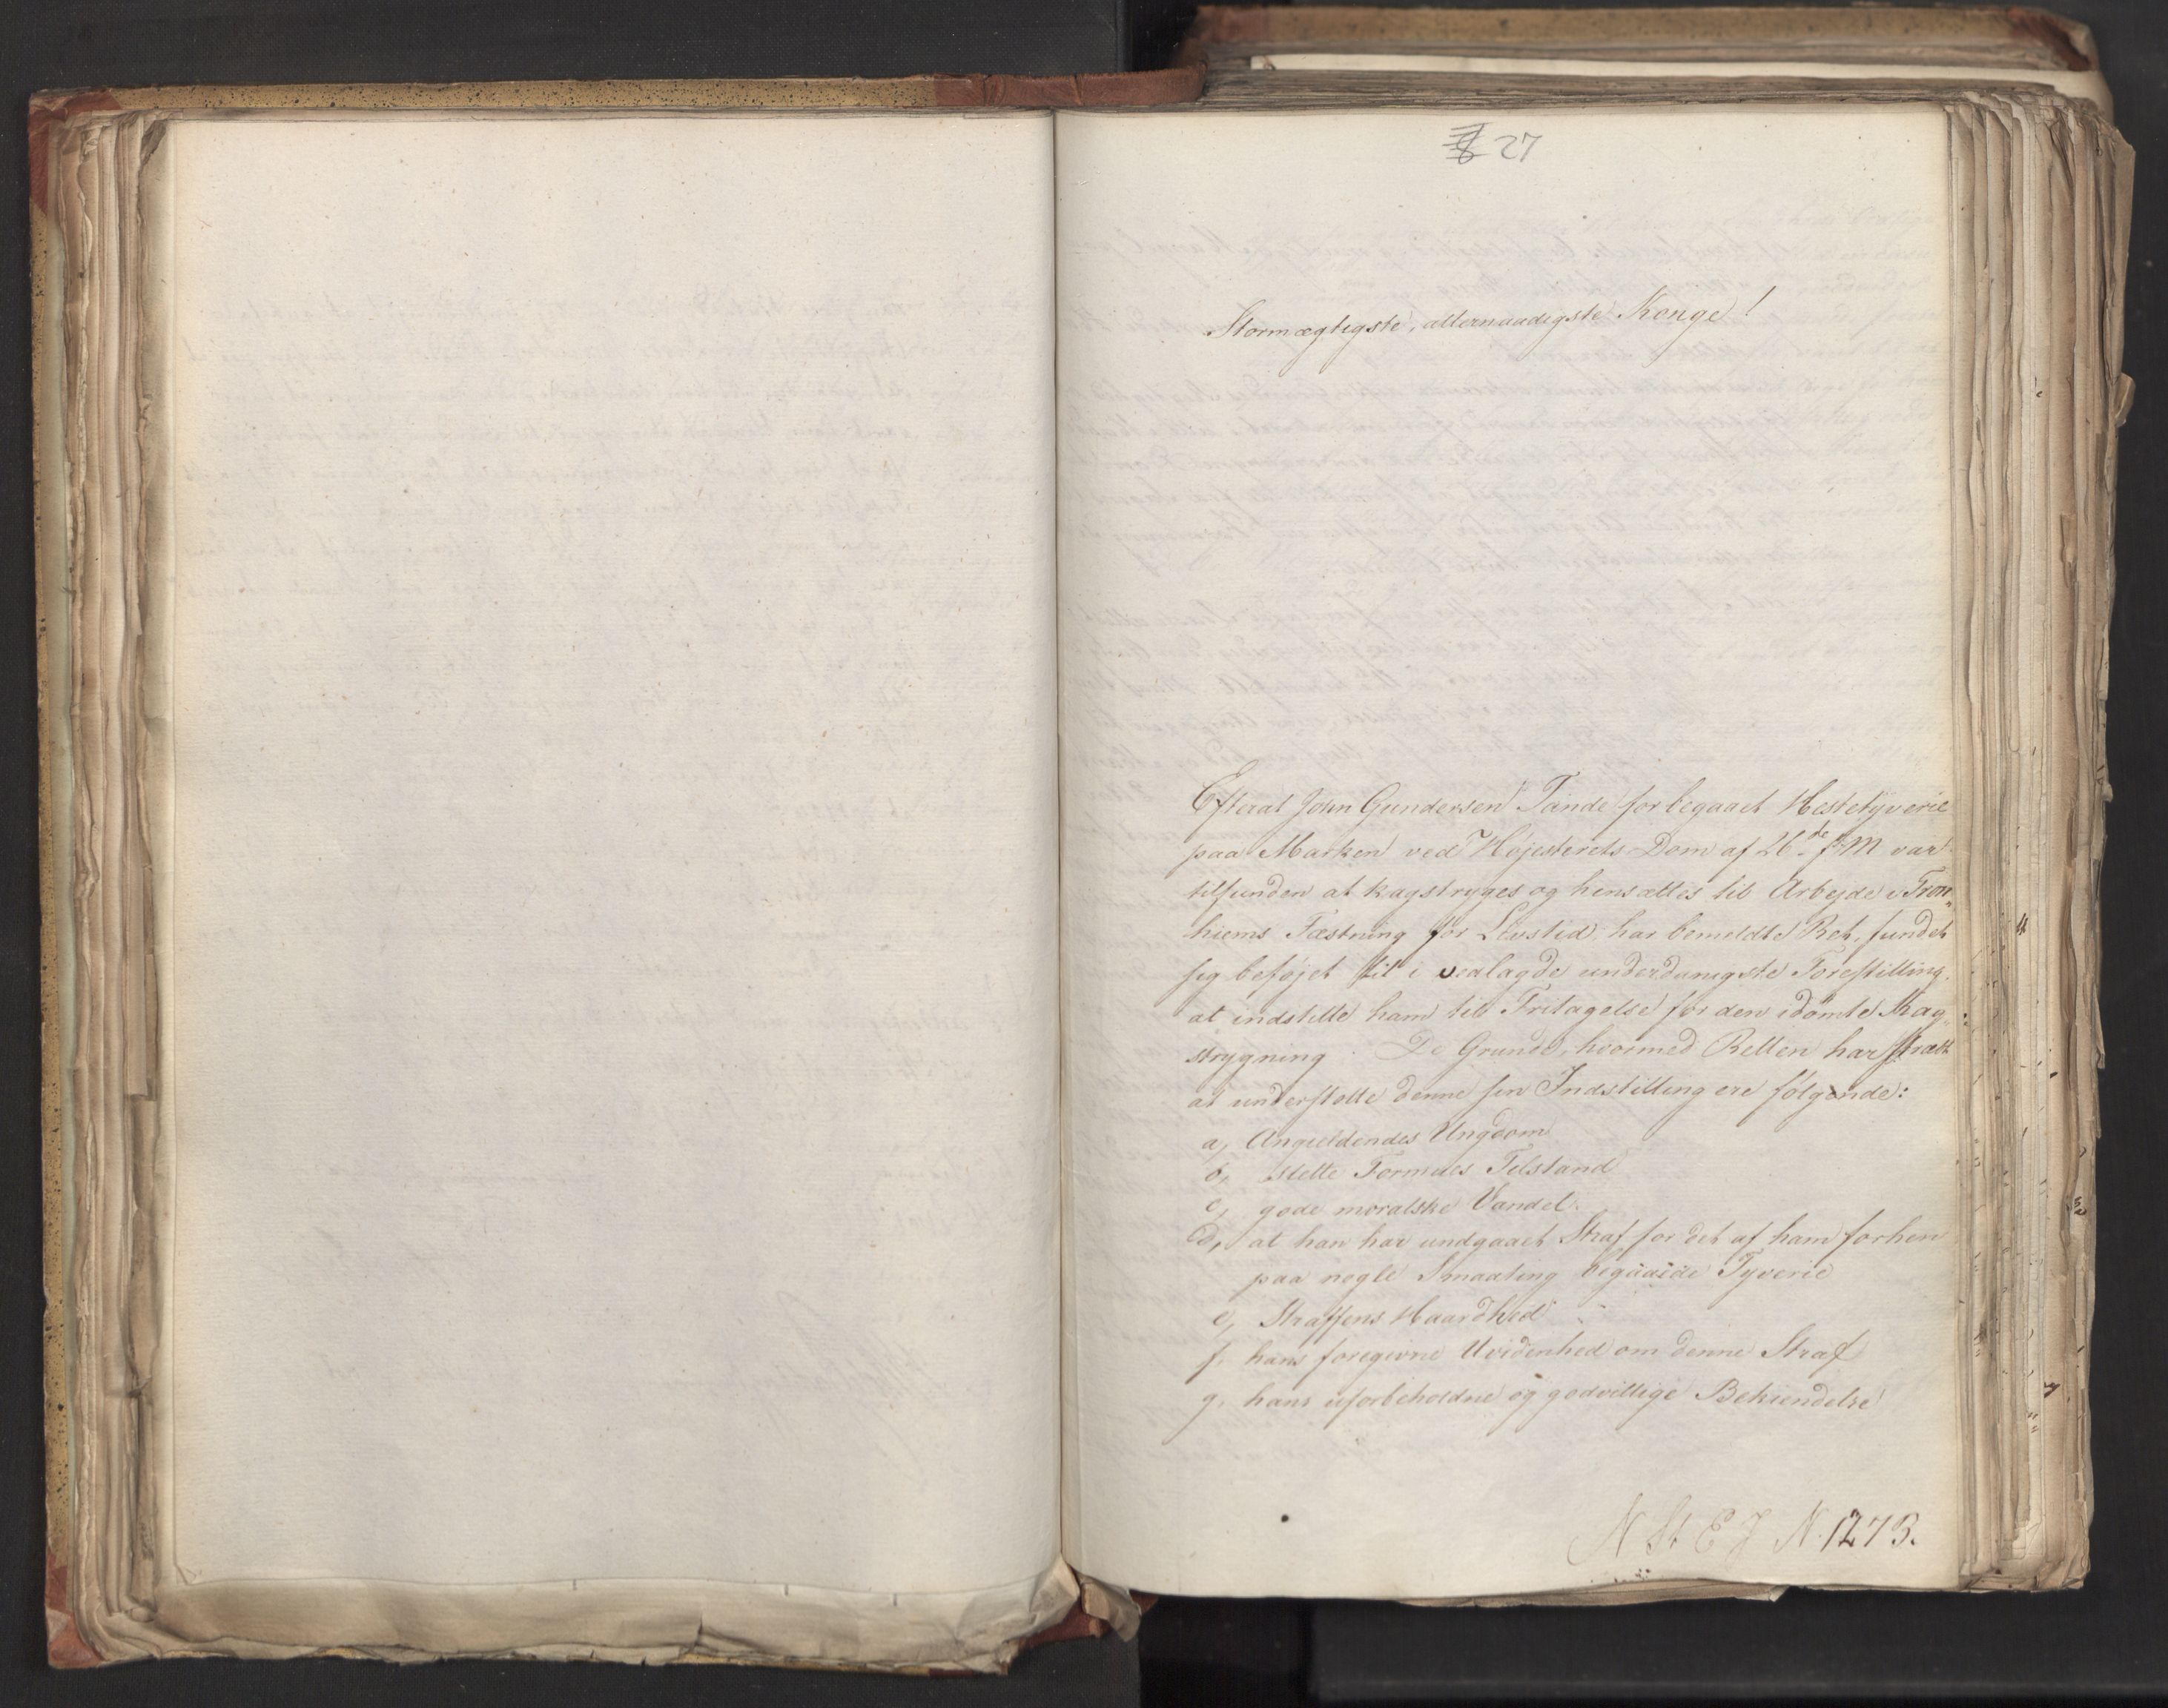 27
Stormægtigste, allernaadigste Konge!
Efterat John Gundersen Tande for begaaet Hestetyverie
paa Marken ved Høiesterets Dom af 26de f: M var
tilfunden at kagstryges og hensættes til Arbejde i Tron„
hiems Fæstning for Livstid, har bemeldte Ret, fundet
sig beføjet til i vedlagde underdanigste Forestilling,
at indstille ham til Fritagelse for den idømte Kag„
strygning. De Grunde, hvormed Retten har
at understøtte denne sin Indstilling ere følgende:
a, Angieldendes Ungdom
b, slette Formues Tilstand
c, gode moralske Vandel.
d, at han har undgaaet Straf for det af ham forhen
paa nogle Smaating begaaede Tyverie
e, Straffens Haardhed
f, hans foregivne Uvidenhed om denne Straf
g, hans uforbeholdne og godvillige Bekiendelse
N St E J N. 1273.